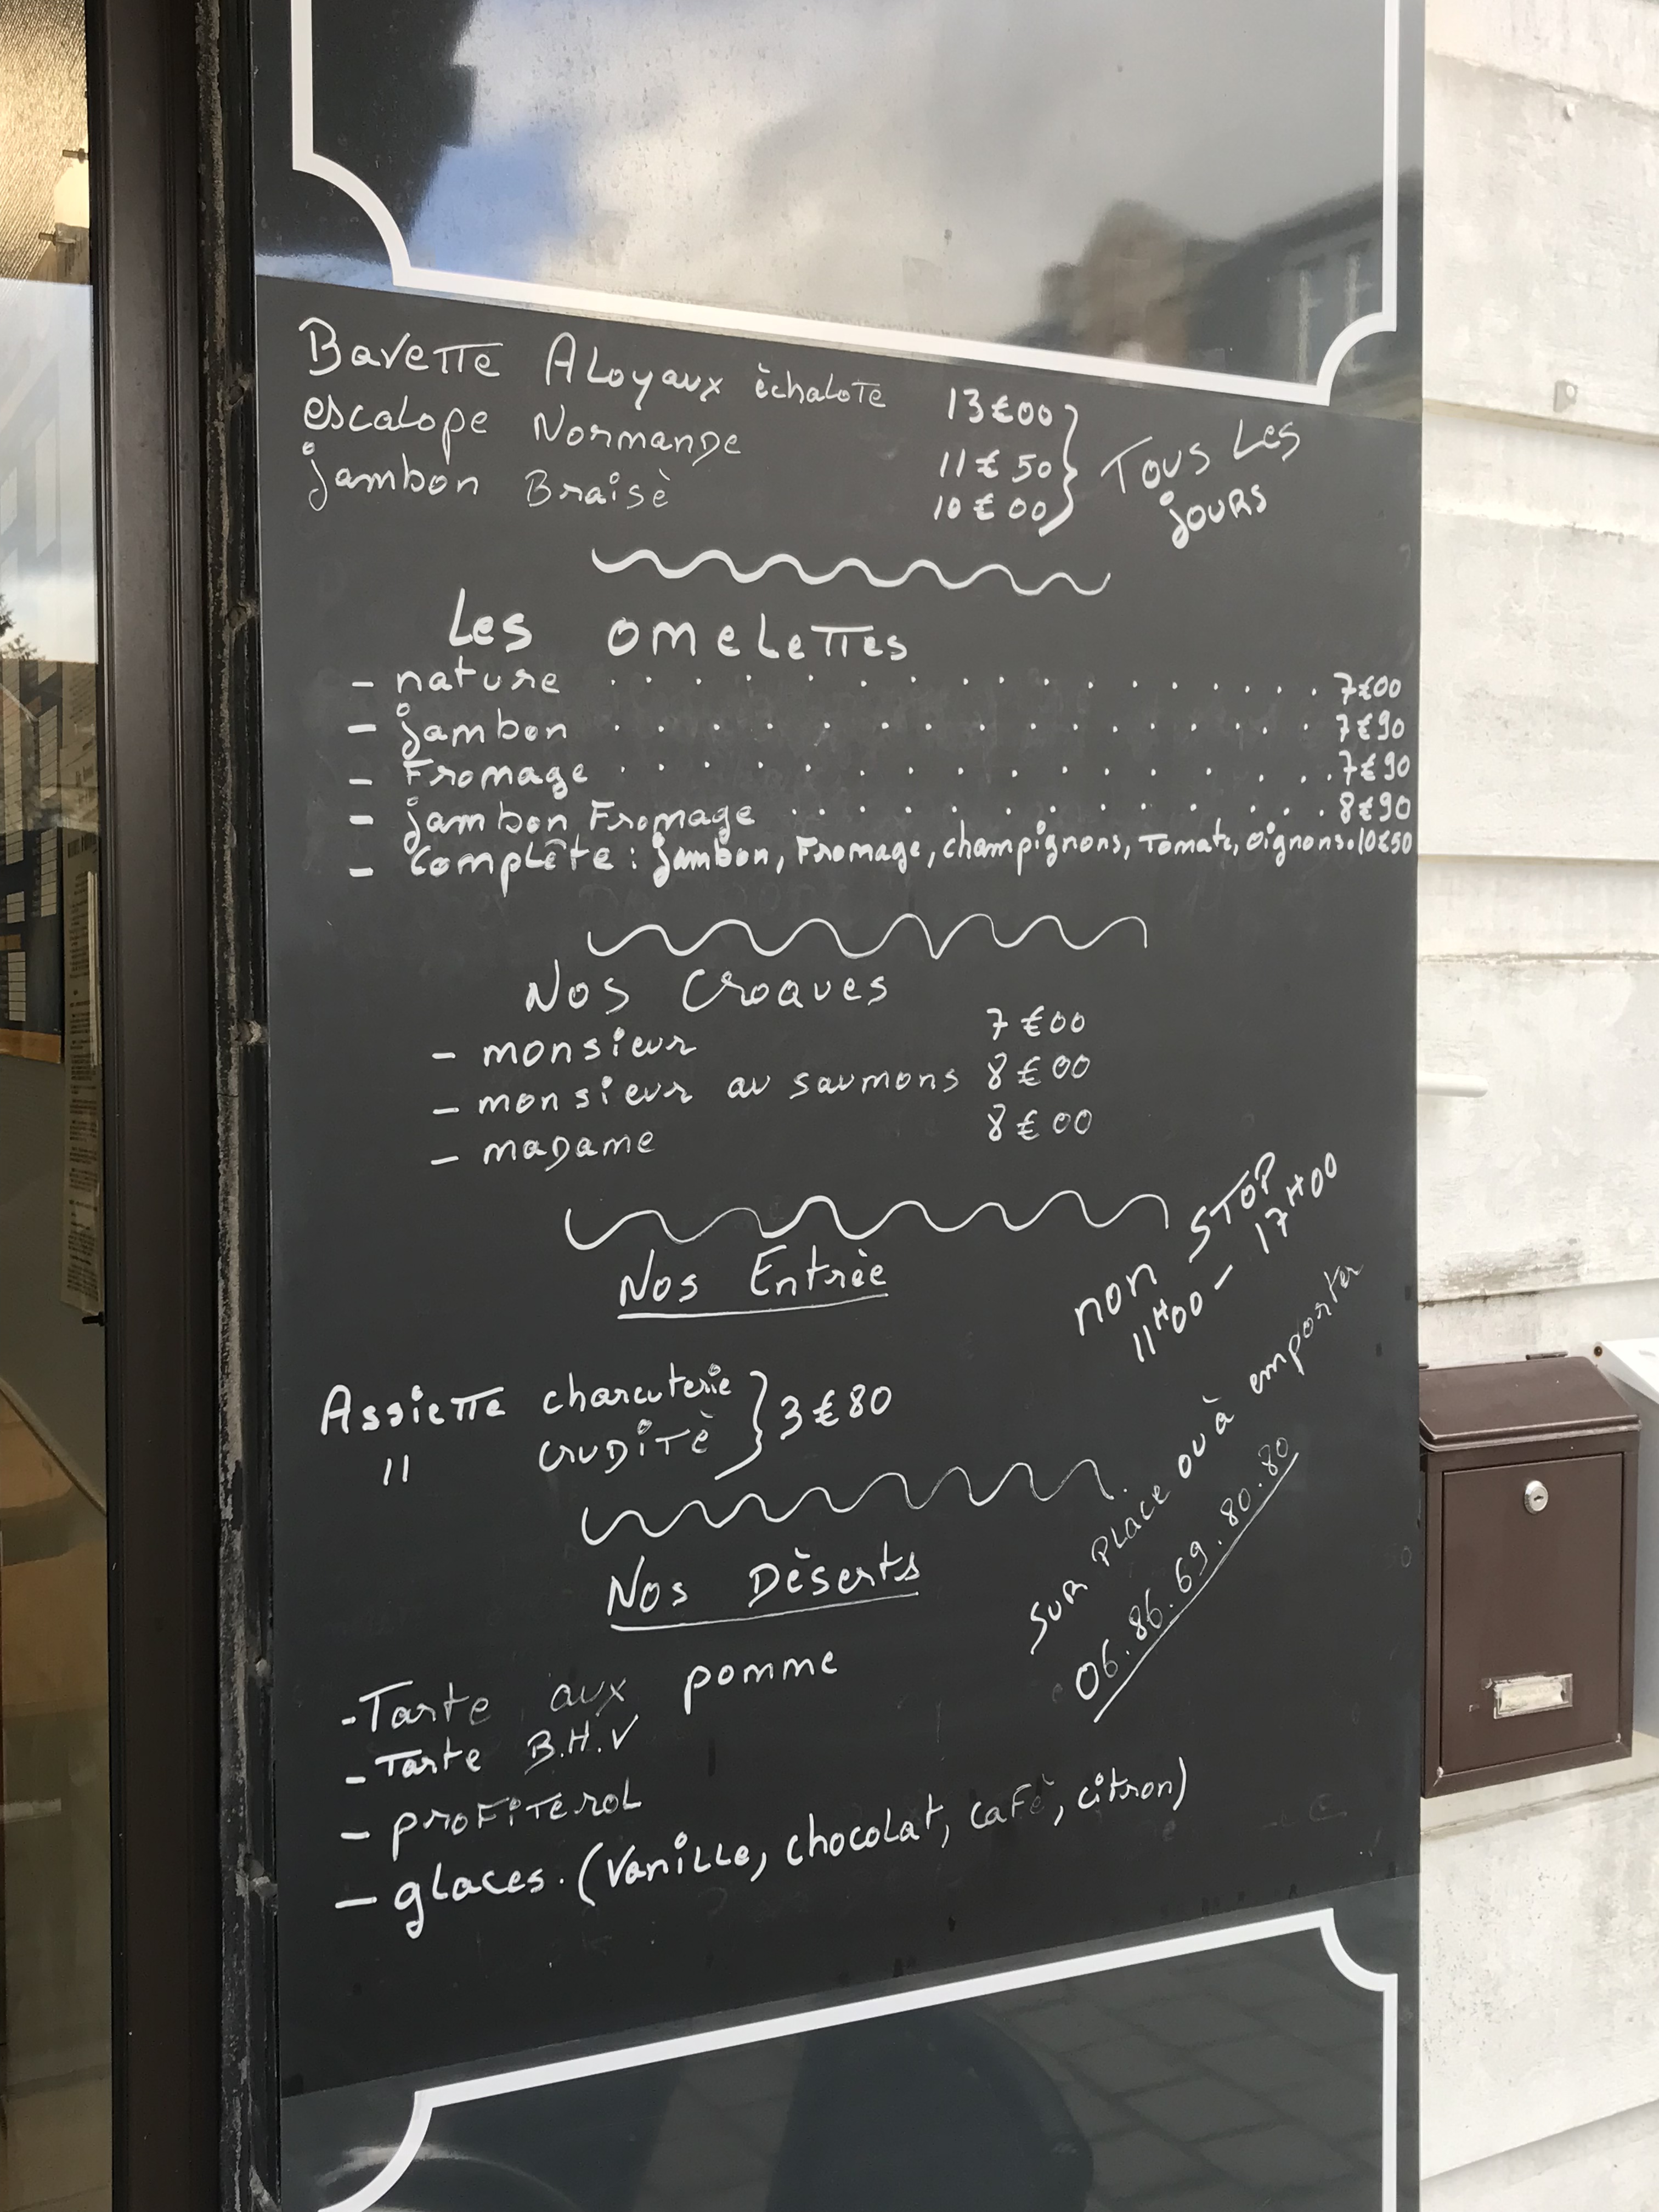 Bavette Aloyaux èchalote 13€00
escalope Normande 11€50
jambon Braisè 10€00
Tous Les
jours
Les omelettes
- nature . . . . . . . . . . . . . . . . . 7€00
- jambon . . . . . . . . . . . . . . . 7€90
- Fromage . . . . . . . . . . . . . . . 7€90
- jambon Fromage . . . . . . . . . . . . 8€90
- Complète : jambon, Fromage, champignons, Tomate, oignons. 10€50
Nos Croques
- monsieur 7€00
- monsieur au saumons 8€00
- madame 8€00
non STOP
11H00 - 17H00
Nos Entrèe
Assiette charcuterie
" cruditè
3€80
sur place ou à emporter
06.86.69.80.80
Nos Dèserts
- Tarte aux pomme
- Tarte B.H.V
- profiterol
- glaces. (Vanille, chocolat, cafè, citron)